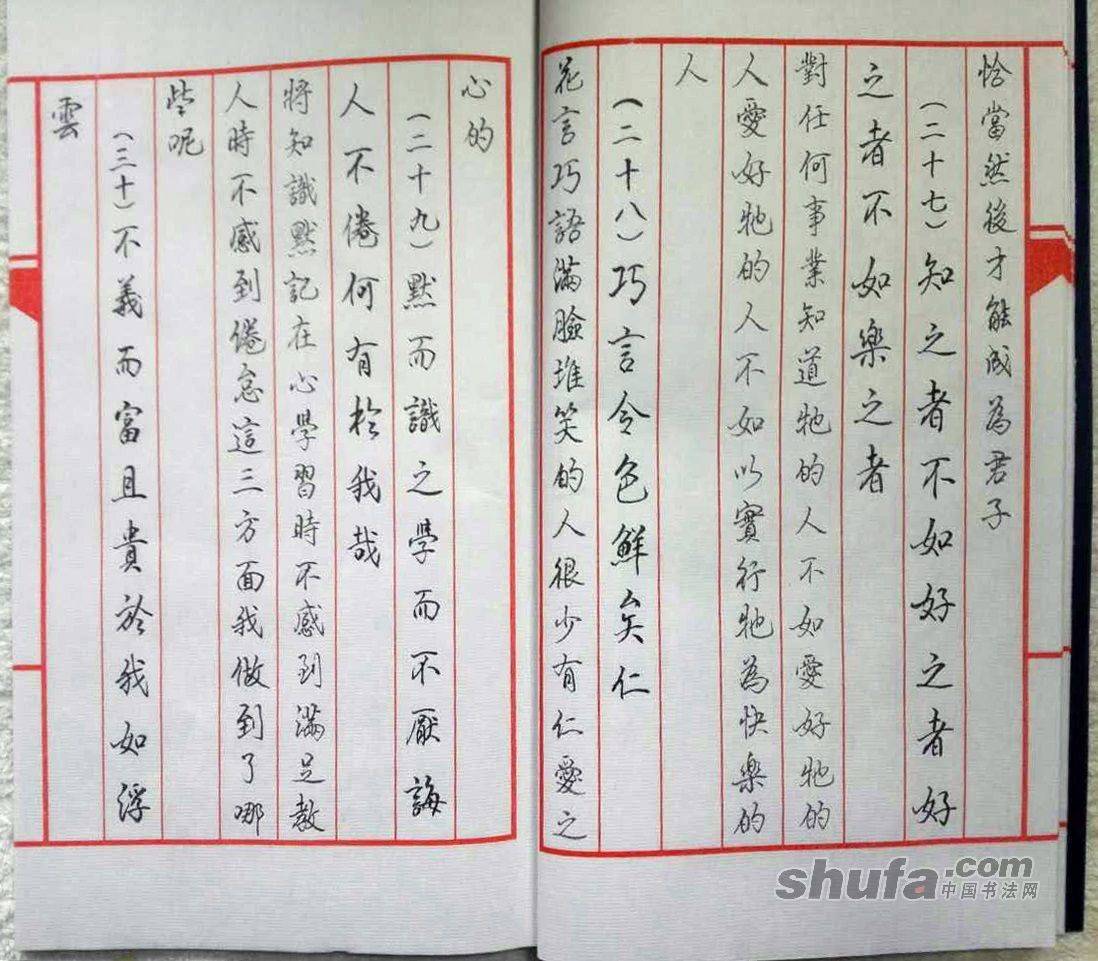 恰當然後才能成為君子
(二十七)知之者不如好之者好
之者不如樂之者
對任何事業知道牠的人不如愛好牠的
人愛好牠的人不如以實行牠為快樂的
人
(二十八)巧言令色鮮矣仁
花言巧語滿臉堆笑的人很少有仁愛之
心的
(二十九)默而識之學而不厭誨
人不倦何有於我哉
將知識默記在心學習時不感到滿足教
人時不感到倦怠這三方面我做到了哪
些呢
(三十)不義而富且貴於我如浮
雲
shufa.com
中国书法网